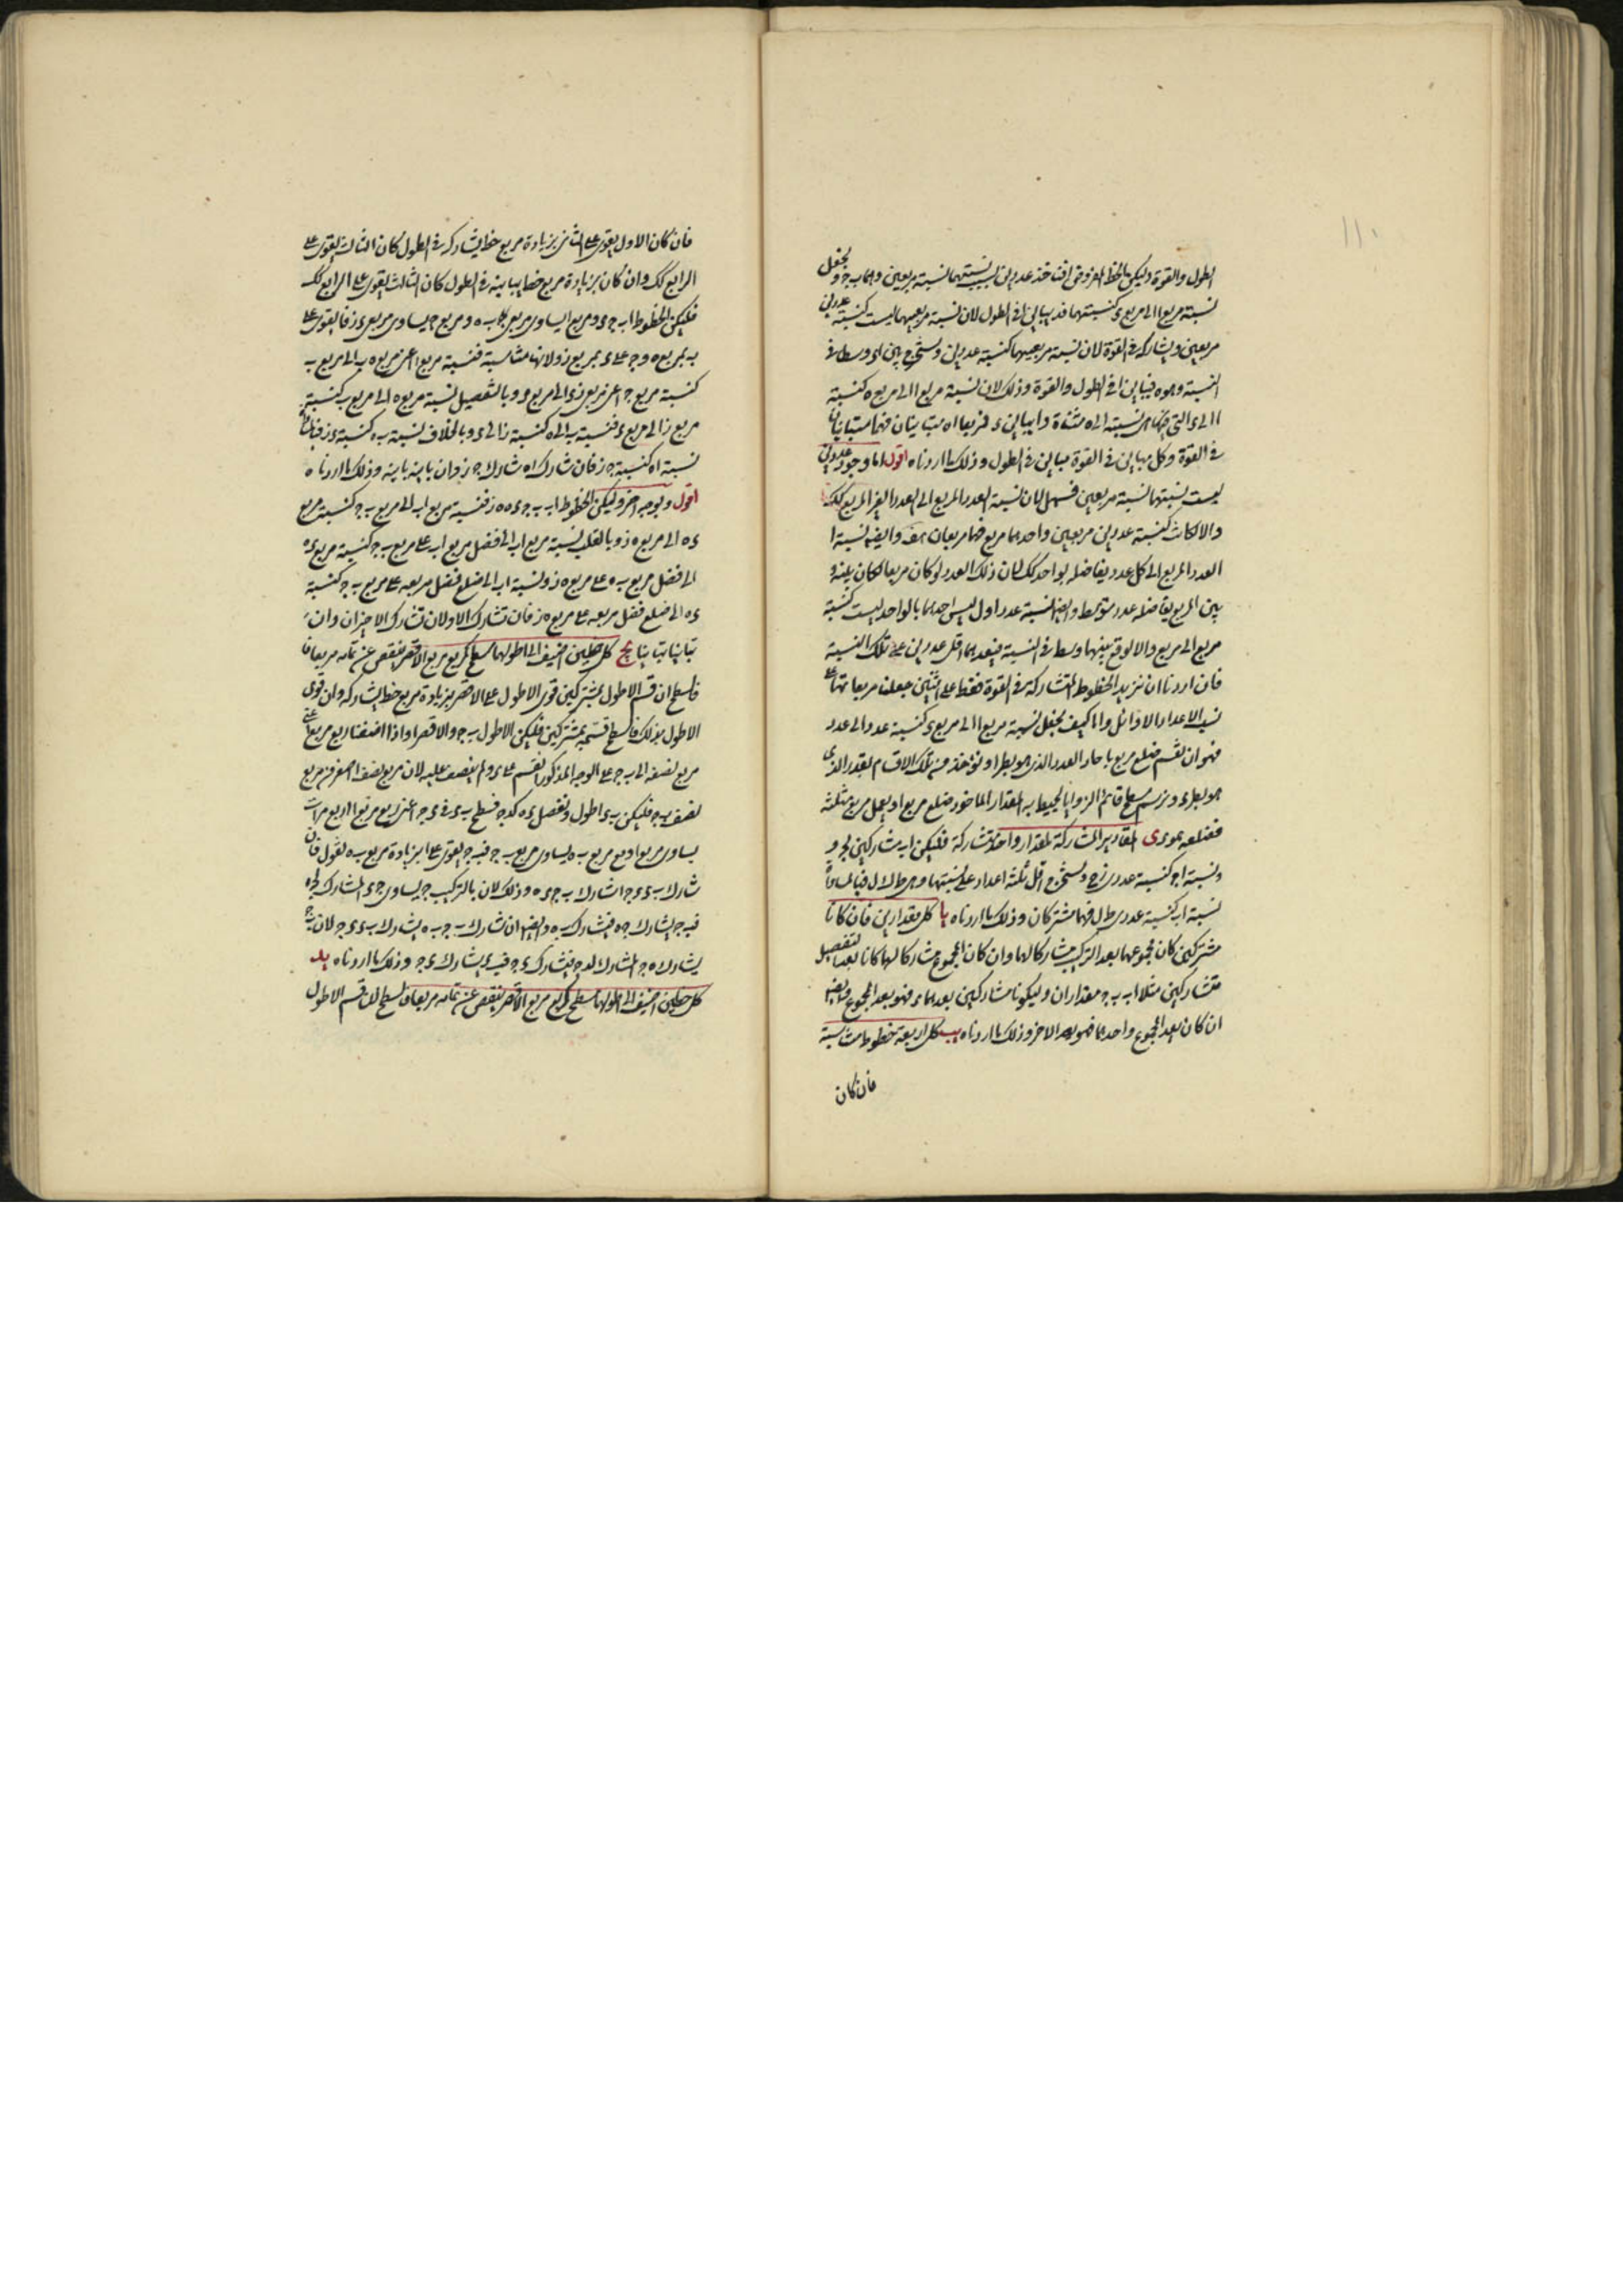 ١١٠
الطول والقوة وليكن الخط المفروض ا فناخذ عددين ليست نسبتهما نسبة مربعين وهما ب ج ونجعل
نسبة مربع ا الى مربع ء كنسبتهما فء يباين ا فى الطول لان نسبة مربعيهما ليست كنسبة عددين
مربعين ويشاركه فى القوة لان نسبة مربعيهما كنسبة عددين ونستخرج بين ا ء وسطا فى
النسبة وهو ه فيباين ا فى الطول والقوة وذلك لان نسبة مربع ا الى مربع ه كنسبة
ا الى ء التى هى نسبة ا الى ه مثناة وا يباين ء فمربعا ا ه متباينان فهما متباينان
فى القوة وكل مباين فى القوة مباين فى الطول وذلك ما اردناه اقول اما وجود عددين
ليست نسبتهما نسبة مربعين فسهل لان نسبة العدد المربع الى العدد الغير المربع كذلك
والا لكانت كنسبة عددين مربعين واحدهما مربع فهما مربعان هف وايضا نسبة
العدد المربع الى كل عدد يفاضله بواحد كك لان ذلك العدد لو كان مربعا لكان بينه و
بين المربع عدد متوسط وايضا نسبة عدد اول ليس احدهما بالواحد ليست كنسبة
مربع الى مربع والا لوقع بينهما وسط فى النسبة فيعدهما اقل عددين على تلك النسبة
فان اردنا ان نزيد الخطوط المتشاركة فى القوة فقط على اثنين جعلنا مربعاتها على
نسب الاعداد الاوائل واما كيف نجعل نسبة مربع ا الى مربع ء كنسبة عدد الى عدد
فهو ان نقسم ضلع مربع ا باحاد العدد الذى هو نظير ا ونؤخذ من تلك الاقسام بقدر الذى
هو نظير ء ونرسم سطح قائم الزوايا يحيط به المقدار الماخوذ وضلع مربع ا ونعمل مربع مثله
فضلعه هو ء ى المقادير المشاركة لمقدار واحد متشاركة فليكن ا ب مشاركين لج و
ونسبة ا ج كنسبة عددى ونستخرج اقل ثلثة اعداد على نسبتها وهى ط ك ل فبالمساواة
نسبة ا ب كنسبة عددى ط ل فهما مشتركان وذلك ما اردناه يا كل مقدارين فان كانا
مشتركين كان مجموعهما بعد التركيب مشاركا لهما وان كان المجموع مشاركا لهما كانا بعد التفصيل
متشاركين مثلا ا ب ب ج مقداران وليكونا مشاركين يعدهما ء فهو يعد المجموع وايضا
ان كان يعد المجموع واحدهما فهو يعد الاخر وذلك ما اردناه يب كل اربعة خطوط متناسبة
فان كان
فان كان الاول يقوى على الثانى بزيادة مربع خط يشاركه فى الطول كان الثالث يقوى على
الرابع كك وان كان بزيادة مربع خط يباينه فى الطول كان الثالث يقوى على الرابع كك
فليكن الخطوط ا ب ج ء ومربع ا يساوى مربعى ب ه ومربع ج يساوى مربعى ء ز فا يقوى على
ب بمربع ه وج على ء بمربع ز ولانها متناسبة فنسبة مربع ا اعنى مربعى ه ب الى مربع ب
كنسبة مربع ج اعنى مربعى ز ء الى مربع ء وبالتفصيل نسبة مربع ه الى مربع ب كنسبة
مربع ز الى مربع ء فنسبة ه الى ب كنسبة ز الى ء وبالخلاف نسبة ب ه كنسبة ء ز فبالمساواة
نسبة ا ه كنسبة ج ز فان شارك ا ه شارك ج ز وان باينه باينه وذلك ما اردناه
اقول وبوجه اخر وليكن الخطوط ا ب ب ج ء ه ه ز فنسبة مربع ا ب الى مربع ب ج كنسبة مربع
ء ه الى مربع ه ز وبالقلب نسبة مربع ا ب الى فضل مربع ا ب على مربع ب ج كنسبة مربع ء ه
الى فضل مربع ء ه على مربع ه ز ونسبة ا ب الى ضلع فضل مربعه على مربع ب ج كنسبة
ء ه الى ضلع فضل مربعه على مربع ه ز فان تشارك الاولان تشارك الاخيران وان
تباينا تباينا يج كل خطين اضيف الى اطولهما سطح كربع مربع الاقصر ينقص عن تمامه مربعا
فالسطح ان قسم الاطول بمشتركين قوى الاطول على الاقصر بزيادة مربع خط يشاركه وان قوى
الاطول بذلك فالسطح قسمه بمشتركين فليكن الاطول ب ج والاقصر ا واذا اضفنا ربع مربع ا اعنى
مربع نصفه الى ب ج على الوجه المذكور انقسم على ء ولم ينتصف عليه لان مربع نصف ا اصغر من مربع
نصف ب ج فليكن ب ء اطول ونفصل ء ه كء ج فسطح ب ء فى ء ج اعنى ربع مربع ا اربع مرات
يساوى مربع ا ومع مربع ب ه يساوى مربع ب ج فب ج يقوى على ا بزيادة مربع ب ه نقول فان
شارك ب ء ء ج شارك ب ج ب ه وذلك لان بالتركيب ب ج يشارك ج ء المشارك لج ه
فب ج يشارك ج ه فيشارك ب ه وايضا ان شارك ب ج ب ه يشارك ب ء ء ج لان ب ج
يشارك ه ج المشارك لء ج فيشارك ء ج فب ء يشارك ء ج وذلك ما اردناه يد
كل خطين اضيف الى اطولهما سطح كربع مربع الاقصر ينقص عن تمامه مربعا فالسطح ان قسم الاطول